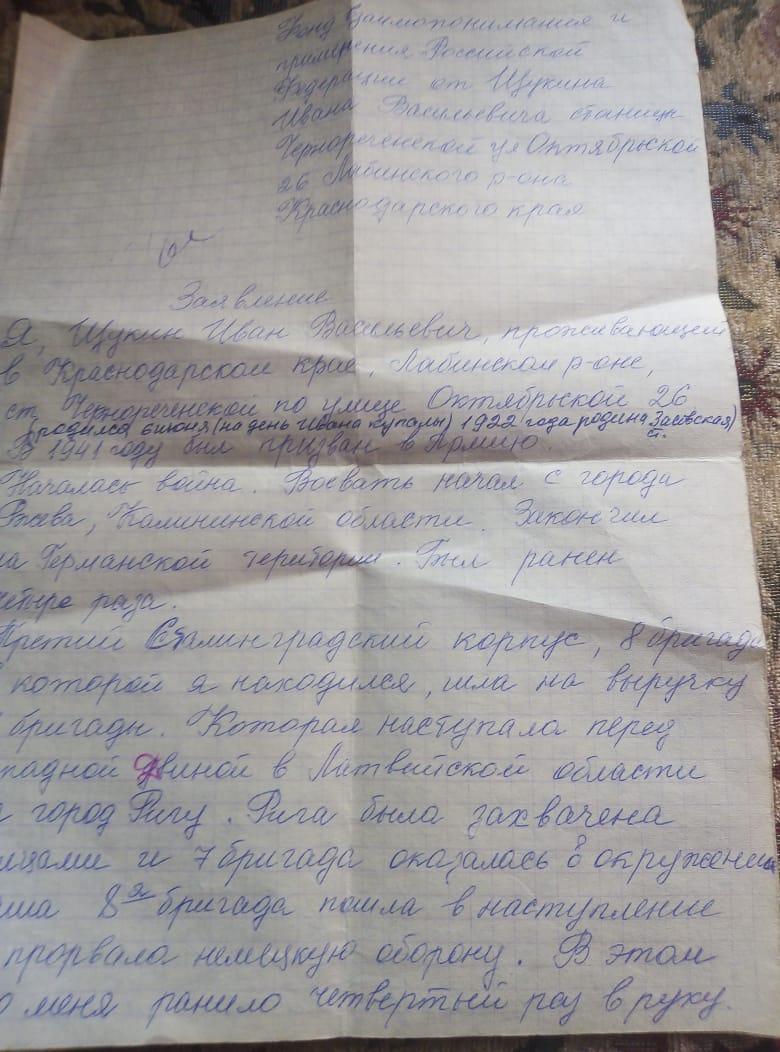 Фонд взаимопонимания и
примирения Российской
Федерации от Щукина
Ивана Васильевича станица
Чернореченской ул Октябрьской
26 Лабинского р-она
Краснодарского края
Заявление
Я, Щукин Иван Васильевич, проживающий
в Краснодарском крае, Лабинском р-оне,
ст. Чернореченской по улице Октябрьской 26
(родился 6 июня (на день Ивана Купалы) 1922 года родина Засовская)
В 1941 году был призван в Армию.
Началась война. Воевать начал с города
Ржева, Калининской области. Закончил
на Германской територии. Был ранен
четыре раза.
Третий Сталинградский корпус, 8 бригада
которой я находился, шла на выручку
бригады. Которая наступала перед
падной Двиной в Латвийской области
город Ригу. Рига была захвачена
и 7 бригада оказалась в окружении
8я бригада пошла в наступление
прорвала немецкую оборону. В этом
меня ранило четвертый раз в руку.